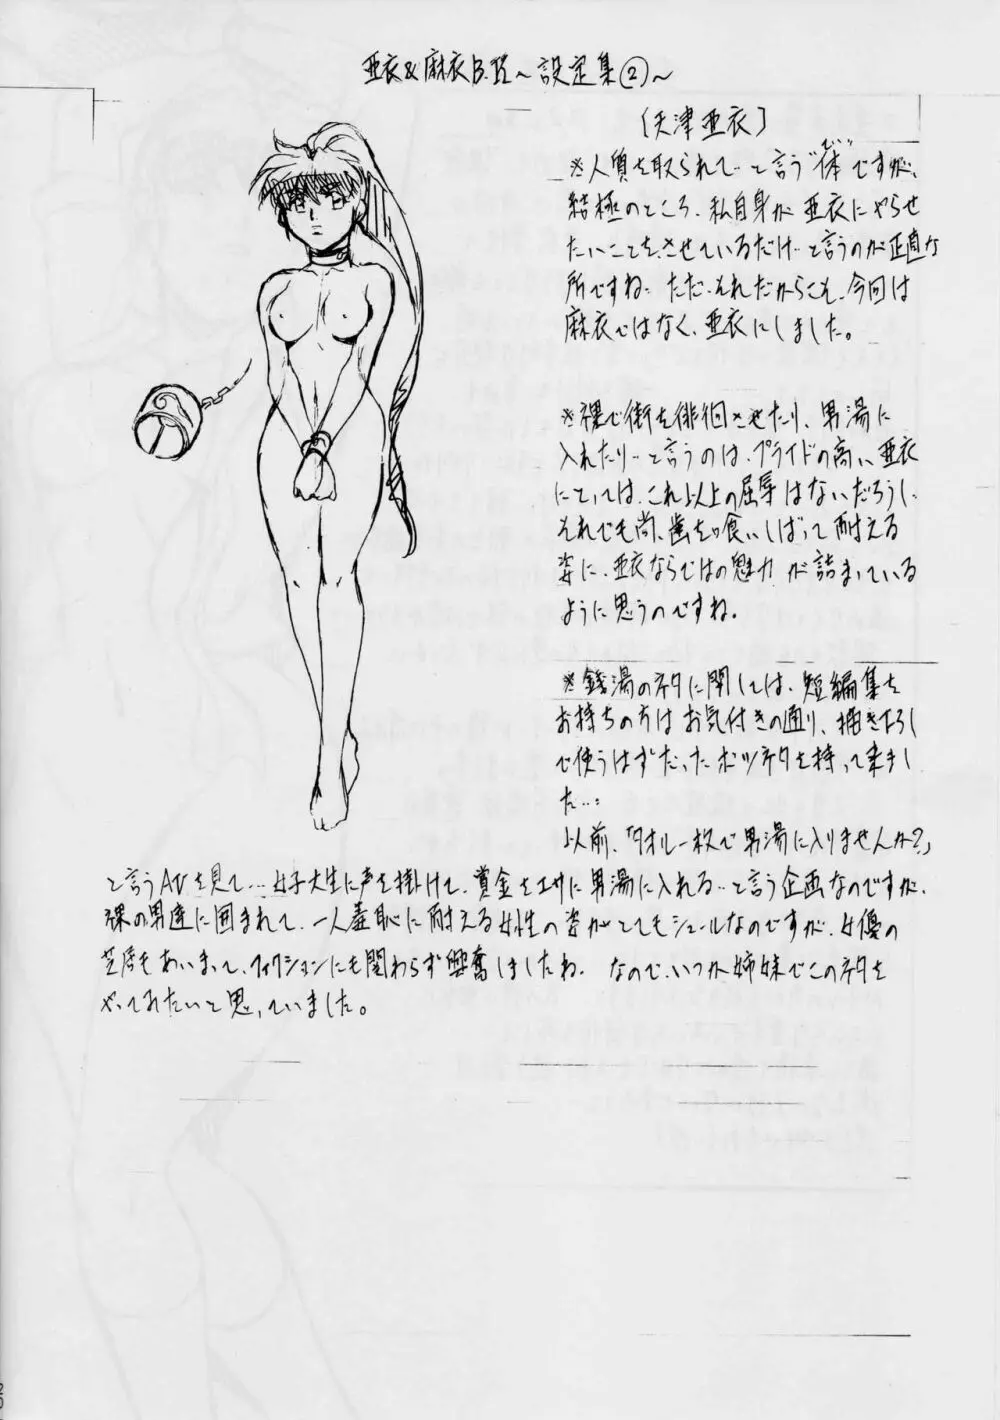 亜衣&麻衣B.R～設定集②～
〔天津亜衣〕
※人質を取られて…と言う"体"ですが、
てい
結極のところ、私自身が亜衣にやらせ
たいことをさせているだけ…と言うのが正直な
所ですね。ただ、それだからこそ、今回は
麻衣ではなく、亜衣にしました。
※裸で街を徘徊させたり、男湯に
入れたり…と言うのは、プライドの高い亜衣
にとっては、これ以上の屈辱はないだろうし、
それでも尚、歯を喰いしばって耐える
姿に、亜衣ならではの魅力が詰まっている
ように思うのですね。
※銭湯のネタに関しては、短編集を
お持ちの方はお気付きの通り、描き下ろし
で使うはずだったボツネタを持って来まし
た…
以前、「タオル一枚で男湯に入りませんか?」
と言うAVを見て…女子大生に声を掛けて、賞金をエサに男湯に入れる…と言う企画なのですが、
裸の男達に囲まれて、一人羞恥に耐える女性の姿がとてもシュールなのですが、女優の
芝居もあいまって、フィクションにも関わらず興奮しましたね。なので、いつか姉妹でこのネタを
やってみたいと思っていました。